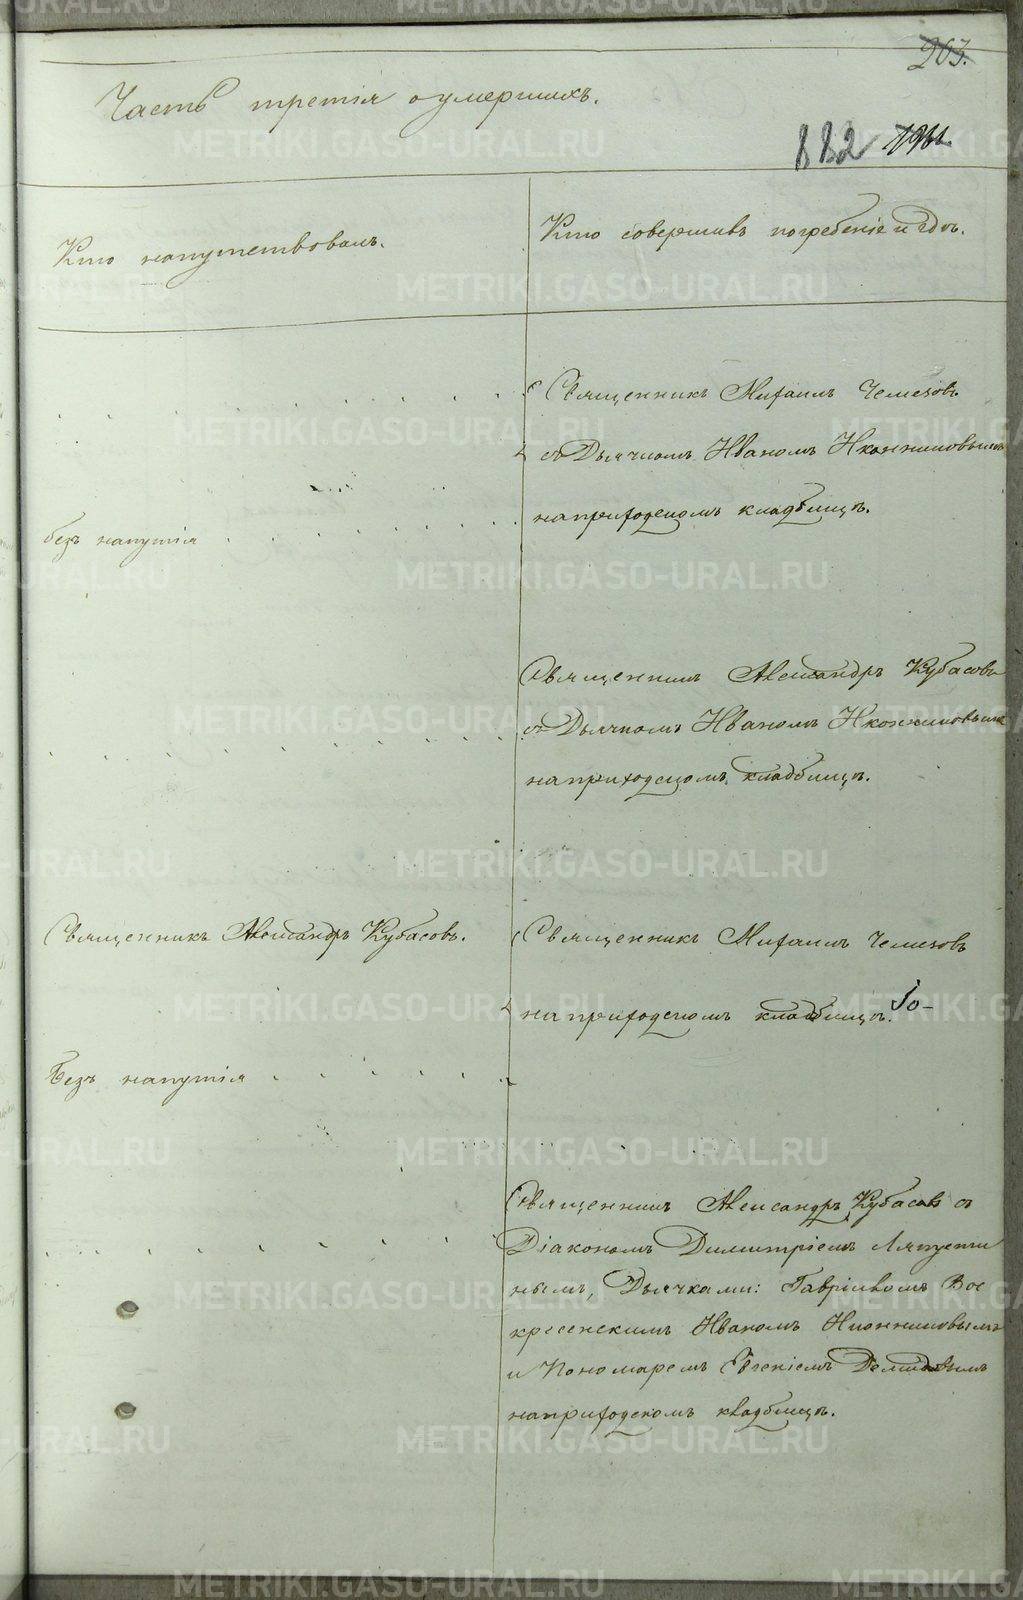 203.
Часть третія о умершихъ.
882
Кто напутствовалъ.
Кто совершивъ погребеніе и гдѣ.
Священникъ Михаилъ Чемезовъ
съ Дьячкомъ Иваномъ Иконниковымъ
на приходскомъ кладбищѣ.
безъ напутія
Священникъ Александръ Кубасовъ
съ Дьячкомъ Иваномъ Иконниковымъ
на приходскомъ кладбищѣ.
Священникъ Александръ Кубасовъ.
Священникъ Михаилъ Чемезовъ
на приходскомъ кладбищѣ.
Безъ напутія
Священникъ Александръ Кубасовъ съ
Діакономъ Димитріемъ Ляпусти
нымъ, Дьячками: Гавріиломъ Вос
кресенскимъ Иваномъ Иконниковымъ
и Пономаремъ Евгеніемъ Демидовымъ
на приходскомъ кладбищѣ.
METRIKI.GASO-URAL.RU